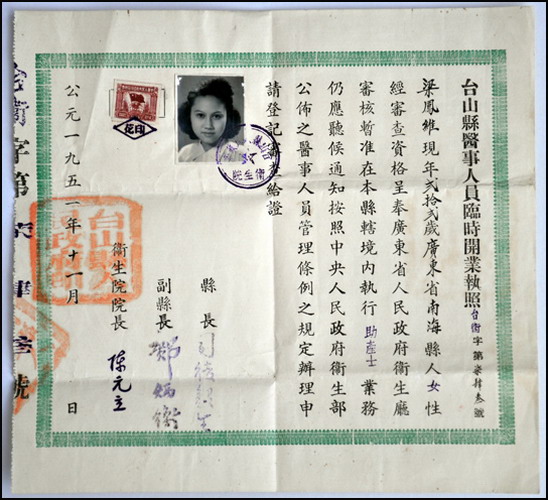 台山縣醫事人員臨時開業執照
台衛字第柒肆叁號
梁鳳維現年貳拾貳歲廣東省南海縣人女性
經審查資格呈奉廣東省人民政府衛生廳
審核暫准在本縣轄境內執行助產士業務
仍應聽候通知按照中央人民政府衛生部
公佈之醫事人員管理條例之規定辦理申
請登記審查給證
縣長
副縣長 鄭炳衛
衛生院院長 陳元立
公元一九五一年十一月 日
衛字第柒肆叁號
印花
衛生院
台山